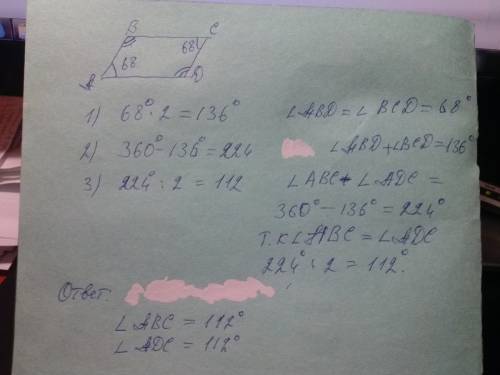 B C
68
68
A D
1) 68°·2=136°
2) 360°-136°=224
3) 224°:2=112
∠ABD=∠BCD=68°
∠ABD+∠BCD=136°
∠ABC+∠ADC=
360°-136°=224°
т.к∠ABC=∠ADC
224°:2=112°.
Ответ:
∠ABC=112°
∠ADC=112°